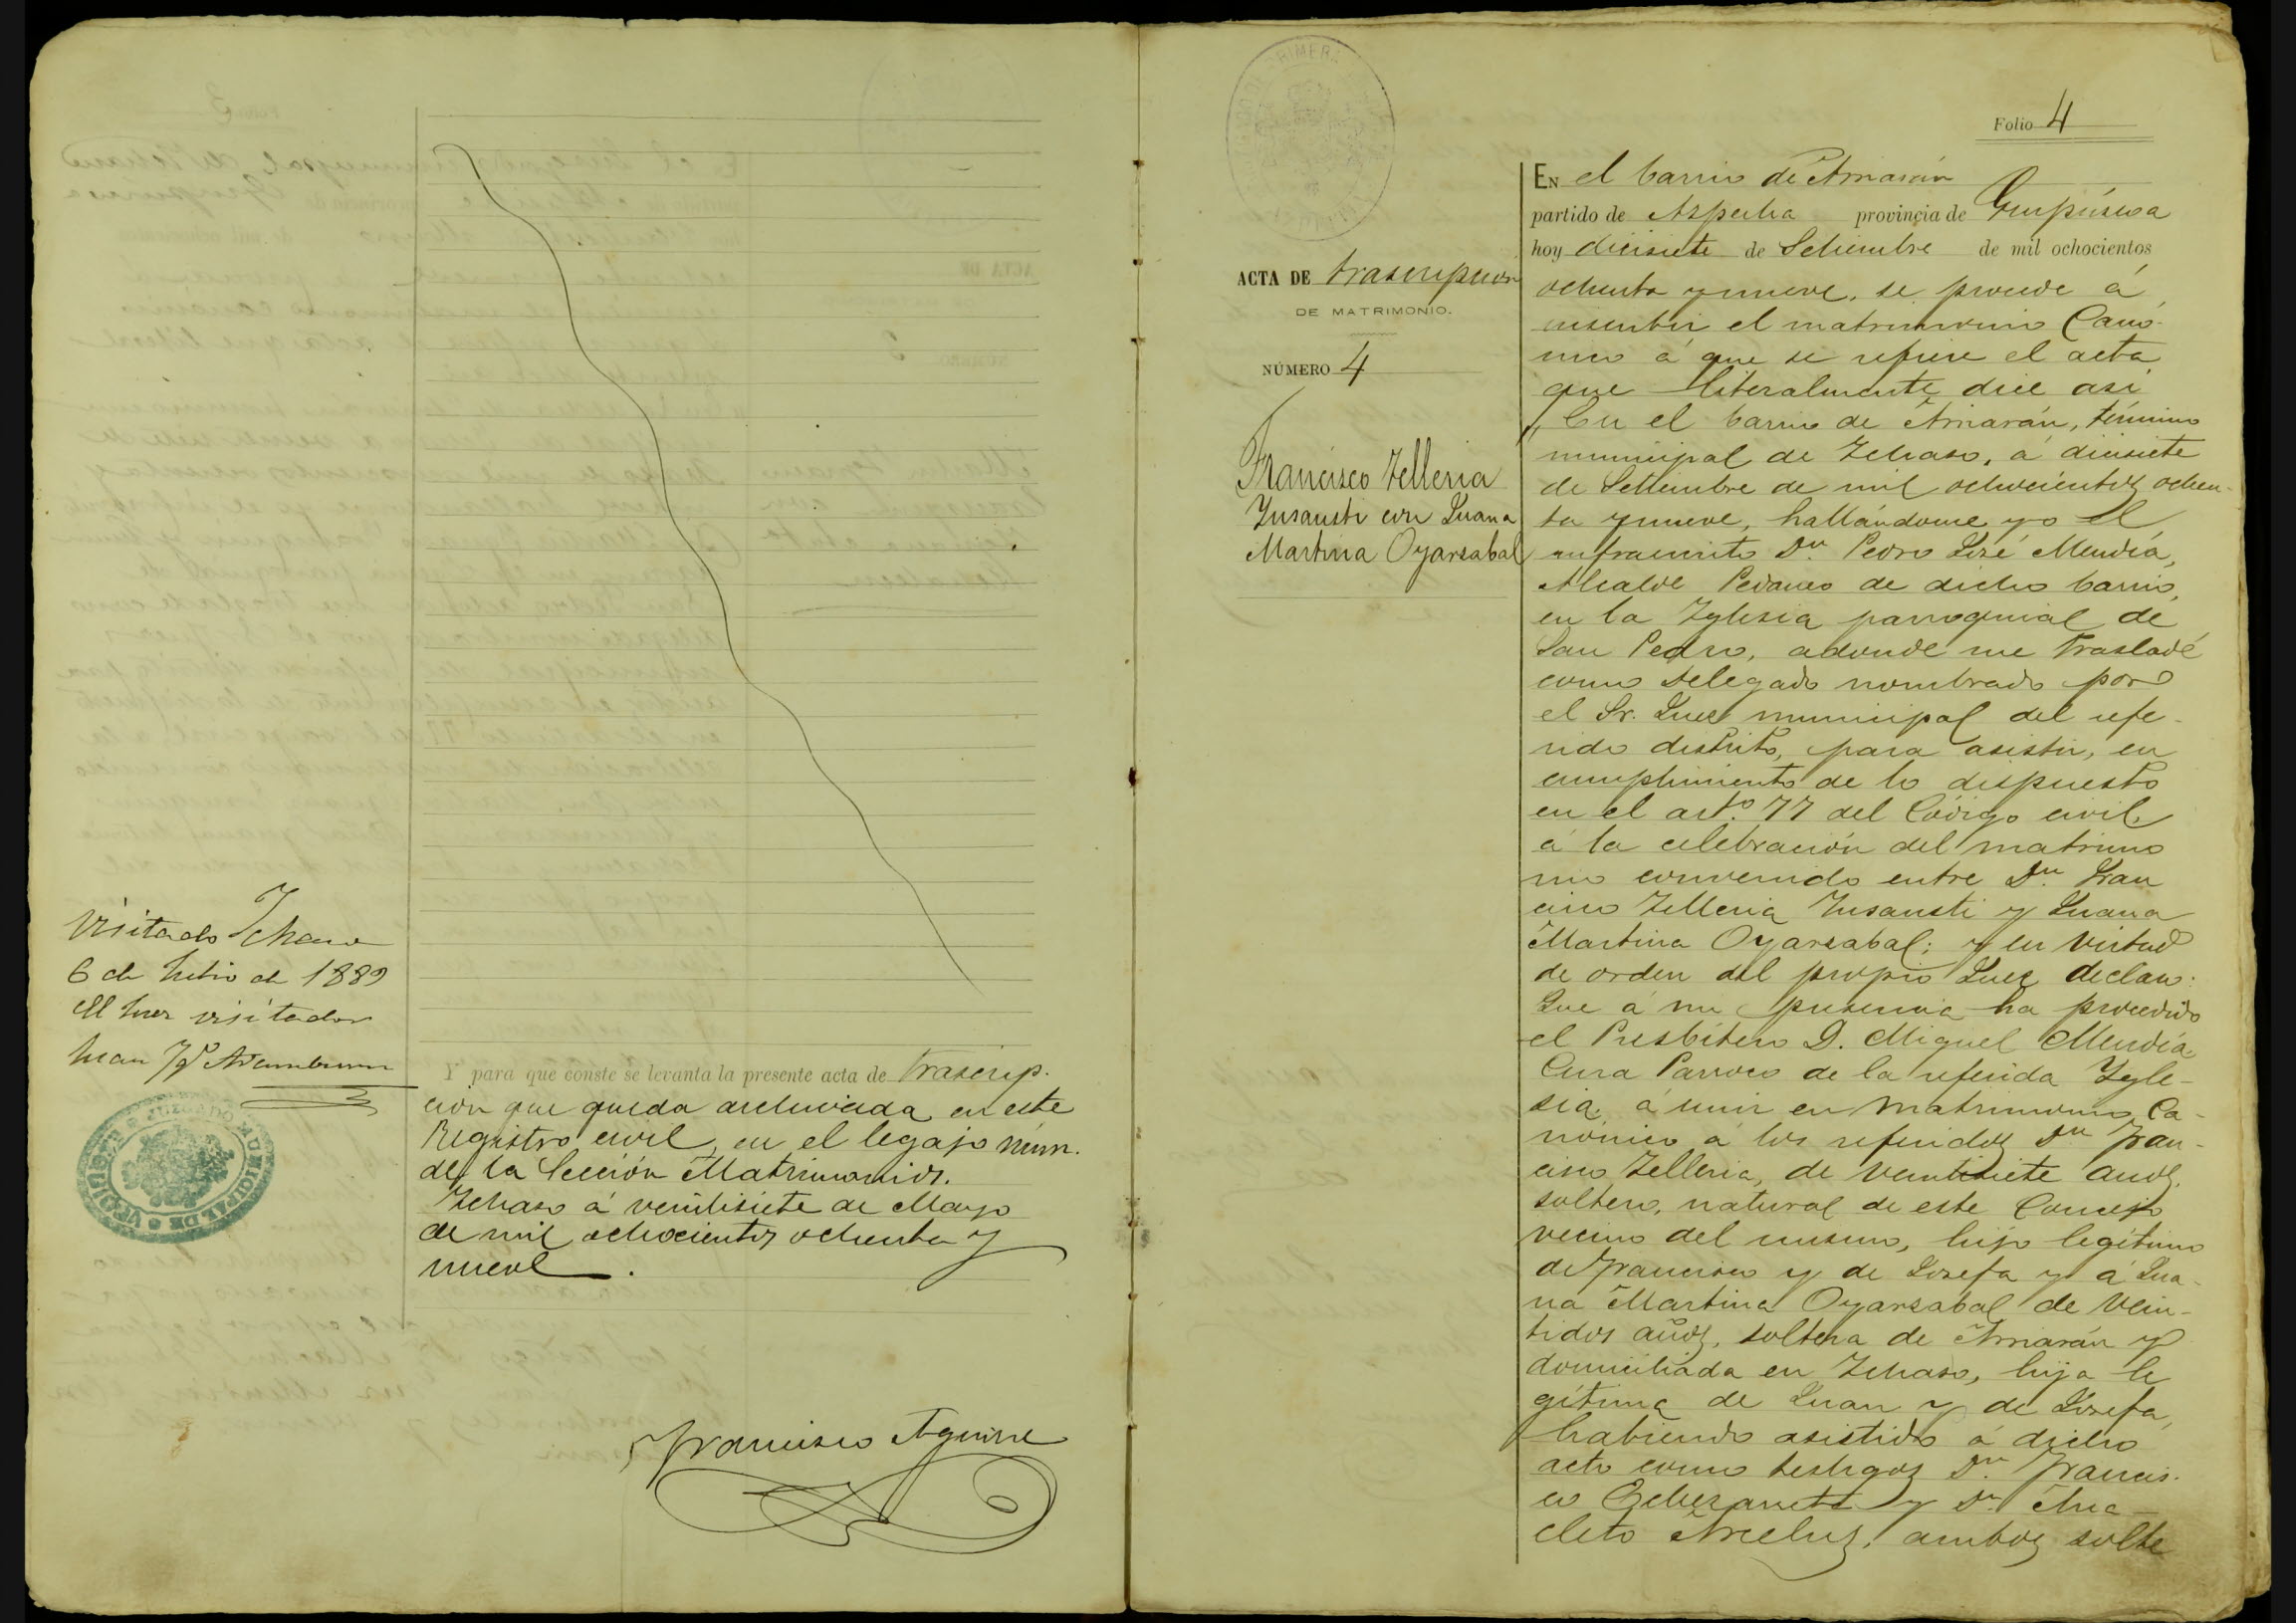 Visitado Ichaso
6 de Julio de 1889
El Juez visitador
Juan Aramburu
JUZGADO MUNICIPAL DE
Y para que conste se levanta la presente acta de trascrip-
cion que queda archivada en este
Registro civil, en el legajo núm.
de la Sección Matrimonios.
Ichaso á veintisiete de Mayo
de mil ochocientos ochenta y
nueve.
Francisco Aguirre
Folio 4
ACTA DE trascripcion
DE MATRIMONIO.
NÚMERO 4
Francisco Telleria
Insausti con Juana
Martina Oyarzabal
EN el barrio de Arriarán
partido de Azpeitia provincia de Guipúzcoa
hoy diecisiete de Setiembre de mil ochocientos
ochenta y nueve, se procede á
inscribir el matrimonio Canó-
nico á que se refiere el acta
que literalmente dice asi
"En el barrio de Arriarán, término
municipal de Ichaso, á diecisiete
de Settiembre de mil ochocientos ochen-
ta y nueve, hallándome yo el
infrascrito Dn. Pedro José Mendía,
Alcalde Pedaneo de dicho barrio,
en la Iglesia parroquial de
San Pedro, adonde me trasladé
como Delegado nombrado por
el Sr. Juez municipal del refe-
rido distrito, para asistir, en
cumplimiento de lo dispuesto
en el arto. 77 del Código civil,
á la celebración del matrimo
nio convenido entre Dn. Fran
cisco Telleria Insausti y Juana
Martina Oyarzabal; y en virtud
de orden del propio Juez declaro:
Que á mi presencia ha procedido
el Presbítero D. Miguel Mendía
Cura Parroco de la referida Igle-
sia, á unir en matrimonio Ca-
nónico á los referidos Dn Fran-
cisco Telleria, de veintisiete años,
soltero, natural de este Concejo
vecino del mismo, hijo legítimo
de Francisco y de Josefa y á Jua-
na Martina Oyarzabal de vein-
tidos años, soltera de Arriarán y
domiciliada en Ichaso, hija le
gítima de Juan y de Josefa,
habiendo asistido á dicho
acto como testigos Dn. Francis-
co y Dn. Ana-
cleto Arceluz, ambos solte